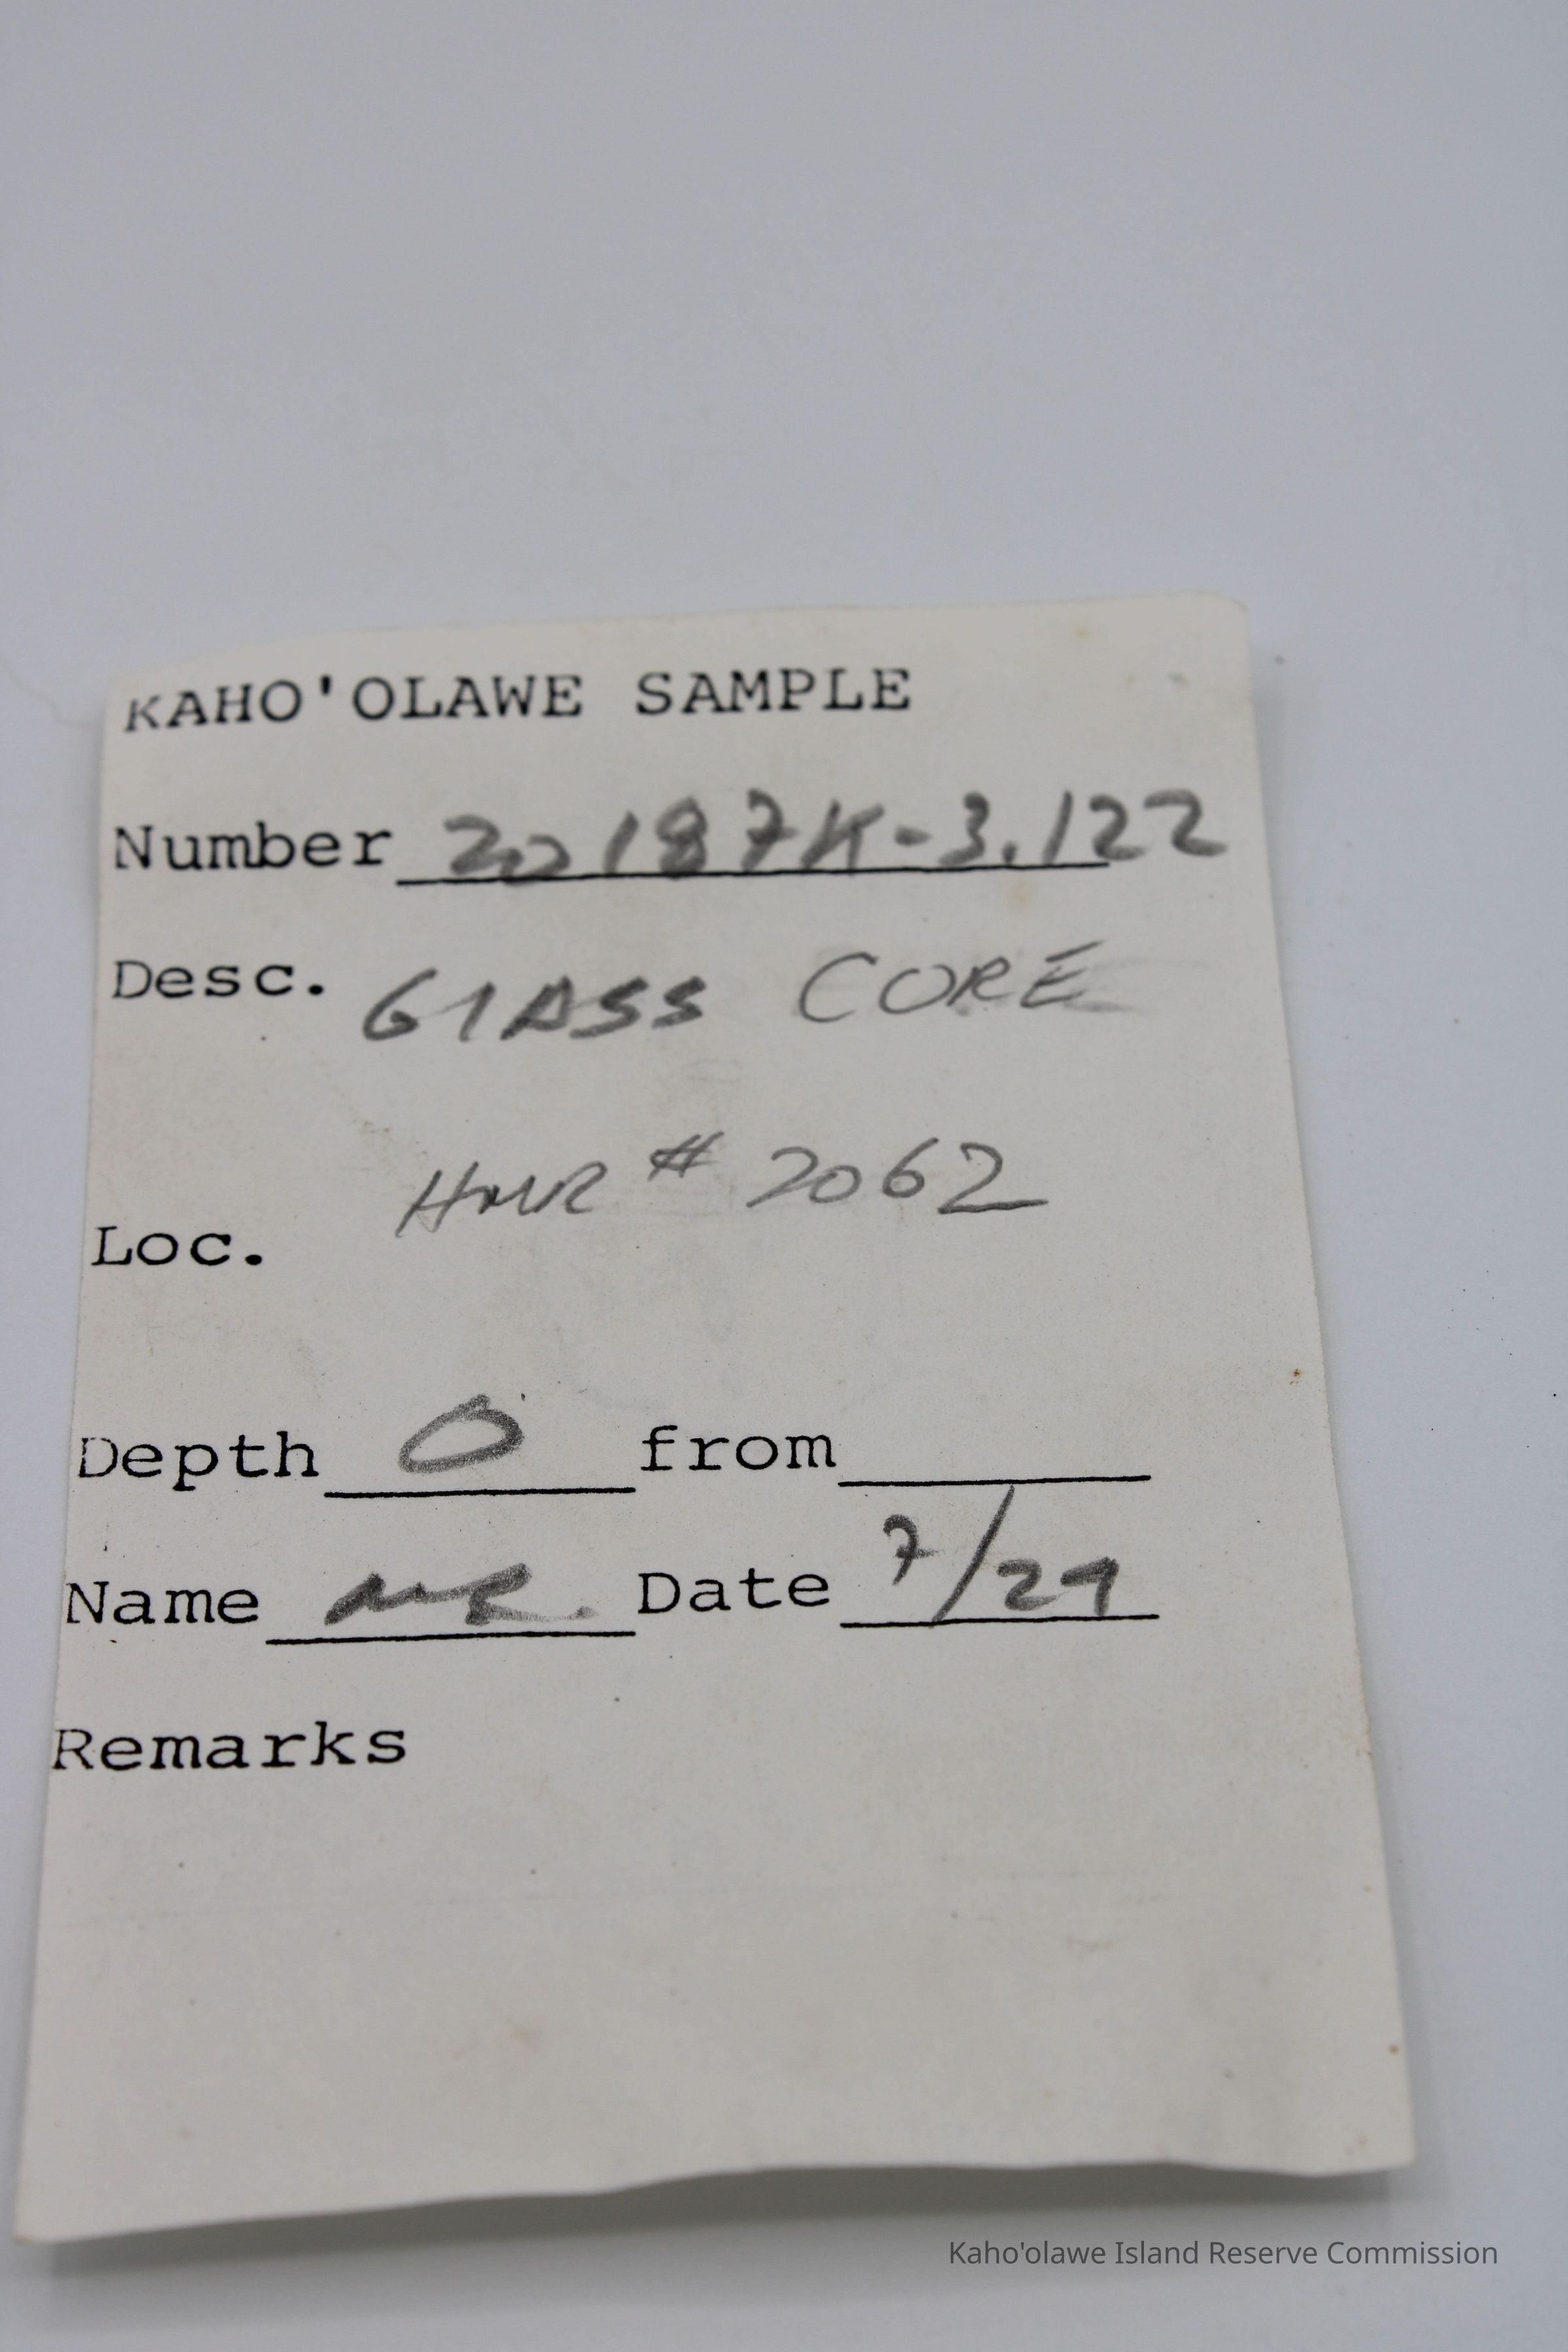 KAHO'OLAWE SAMPLE
Number 20187K-3.122
Desc. GlASS CORE
HMR # 2062
Loc.
Depth 0 from
Name Date 7/29
Remarks
Kaho'olawe Island Reserve Commission